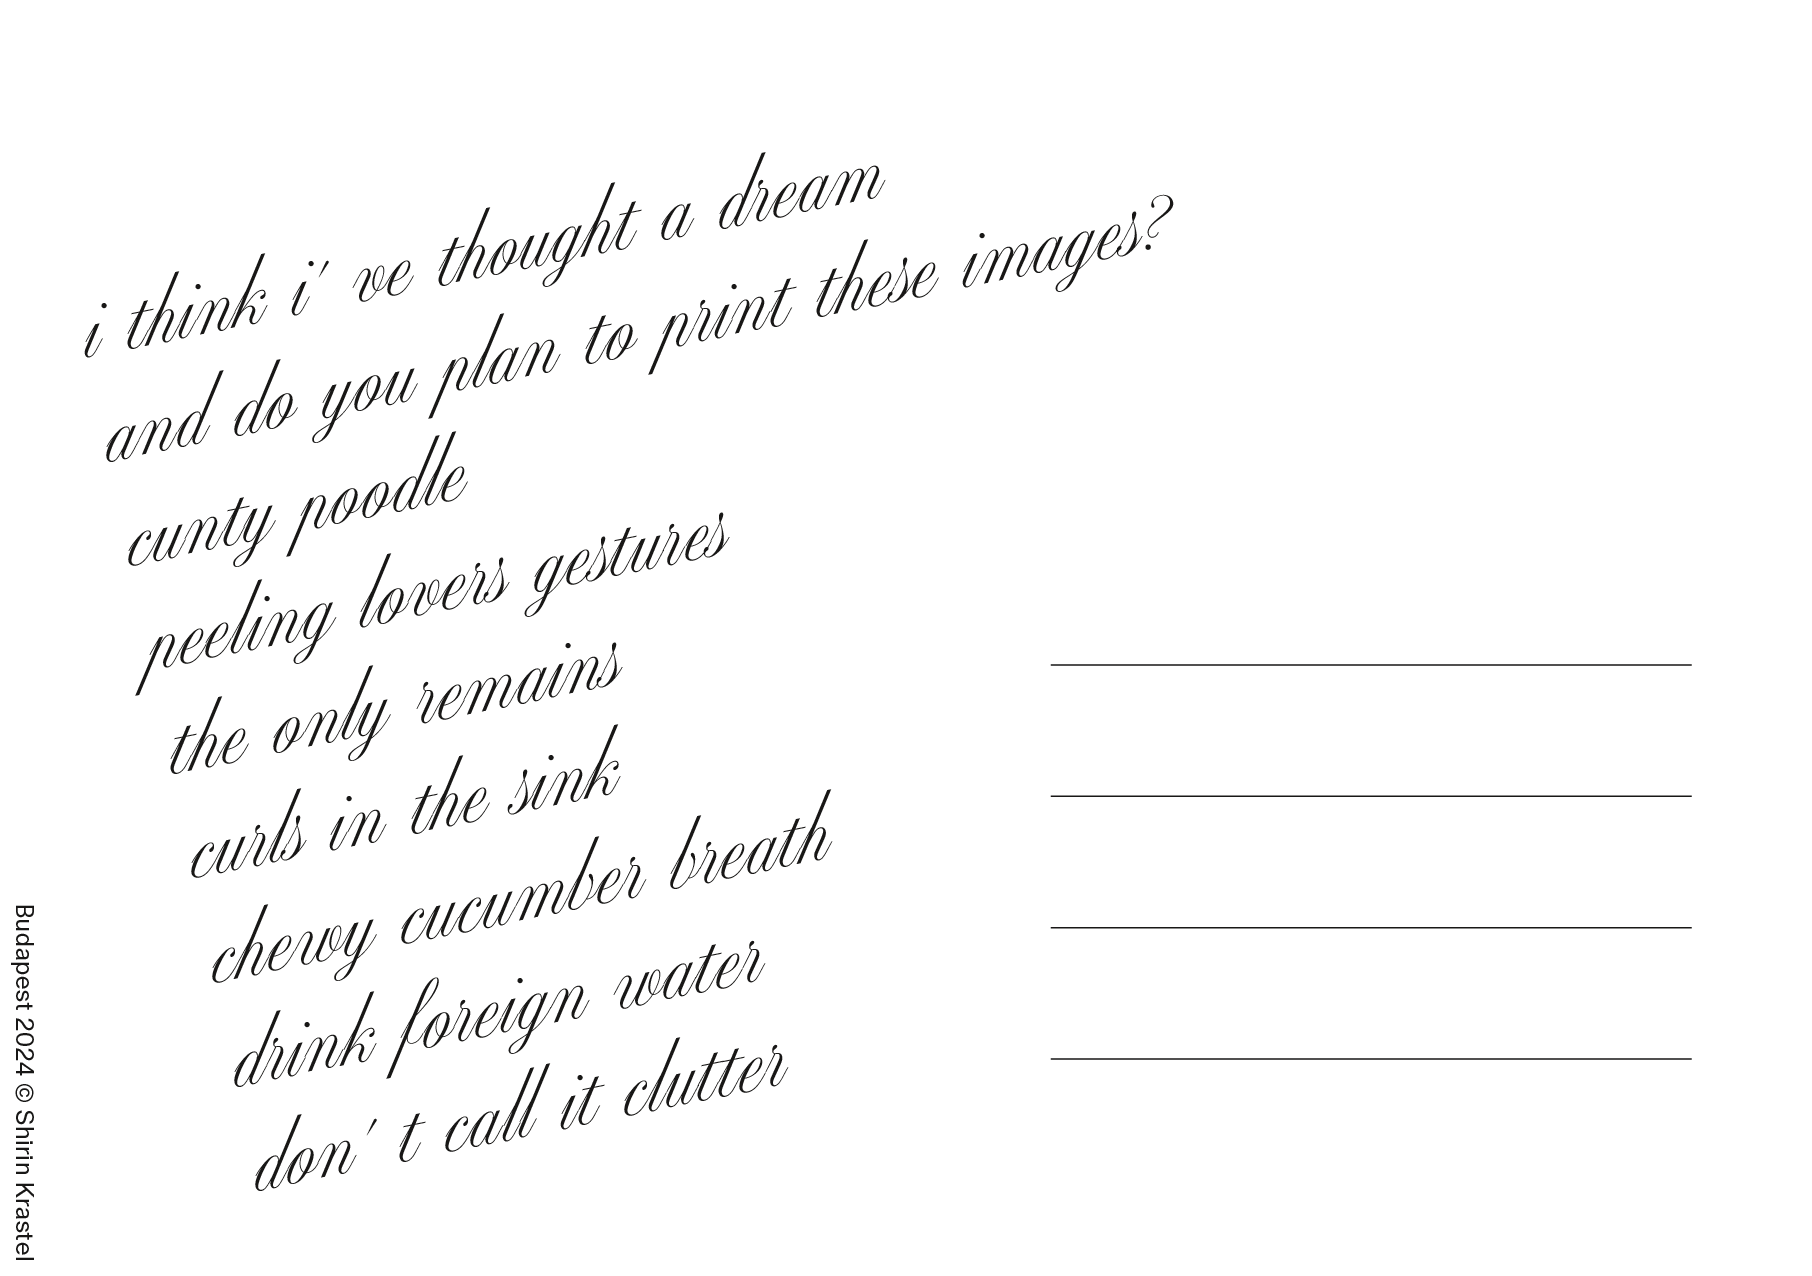 i think i' ve thought a dream
and do you plan to print these images?
cunty poodle
peeling lovers gestures
the only remains
curls in the sink
chewy cucumber breath
drink foreign water
don' t call it clutter
Budapest 2024 © Shirin Krastel